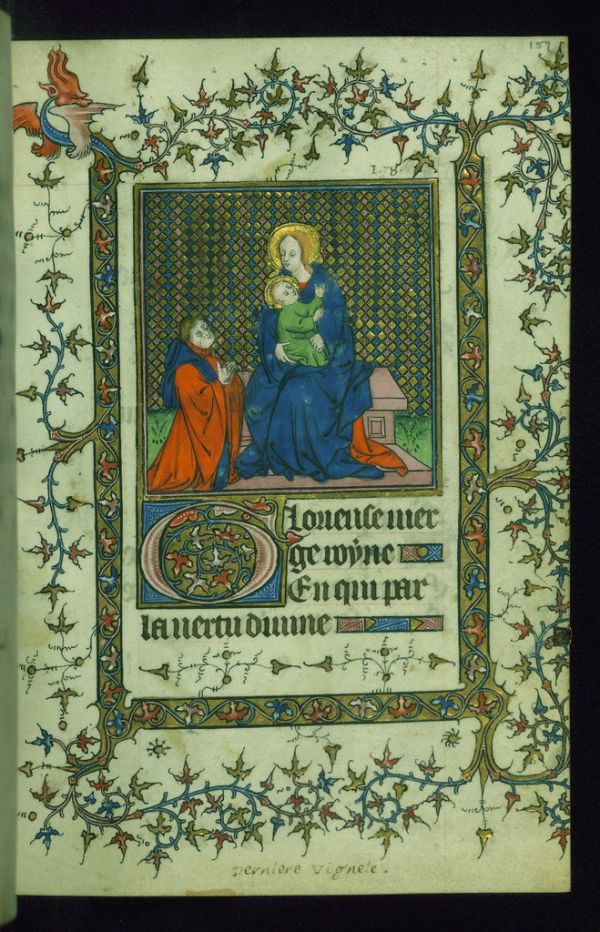 Glorieuse vier
ge royne
En qui par
la uertu diuine
Derniere Vignete.